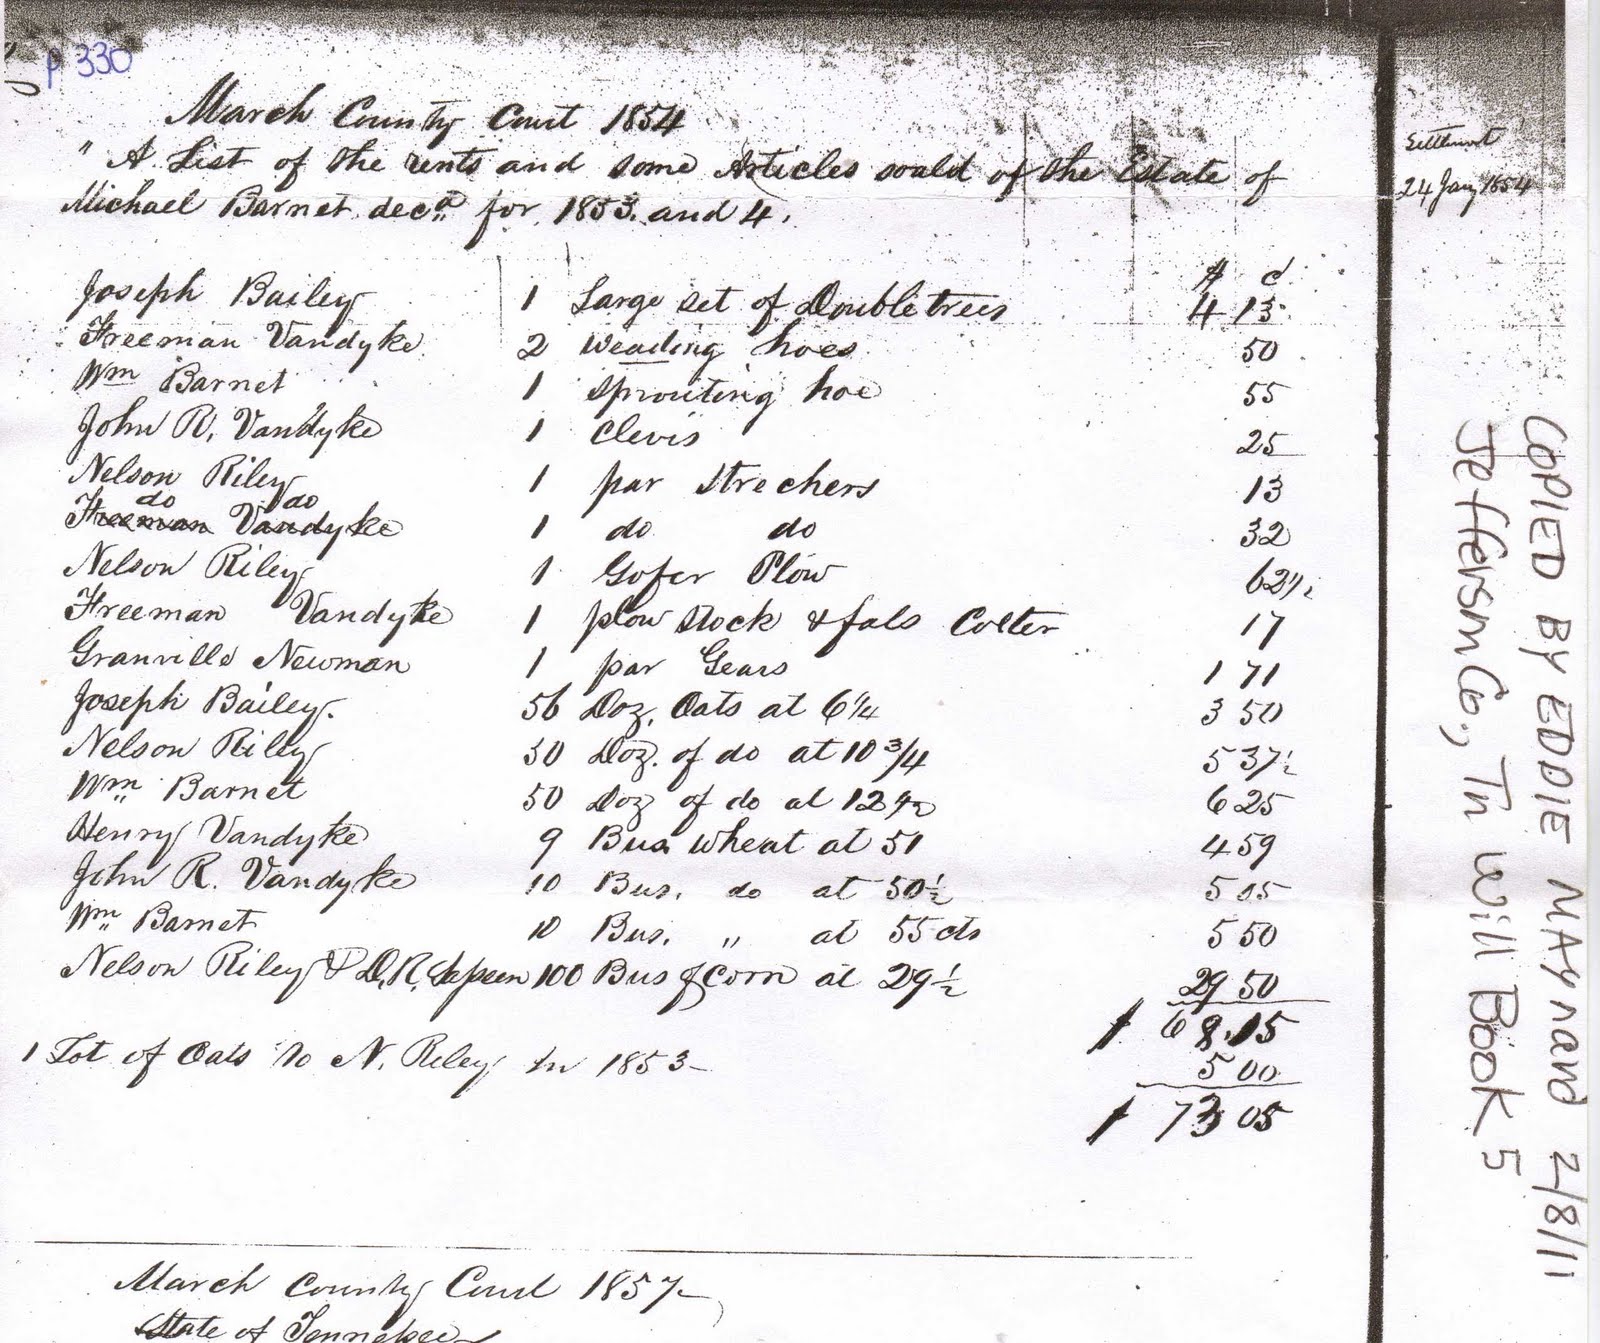 p 330
March County Court 1854
" A List of the rents and some Articles sould of the Estate of
Michael Barnet decd for 1853 and 4.
Settlement
24 Jany 1854
$ c
Joseph Bailey 1 Large set of Doubletrees 4 13
Freeman Vandyke 2 weading hoes 50
Wm Barnet 1 sprouting hoe 55
John R. Vandyke 1 Clevis 25
Nelson Riley 1 par Strechers 13
do do
Freeman Vandyke 1 do do 32
Nelson Riley 1 Gofer Plow 62 1/2
Freeman Vandyke 1 plow stock & fals Colter 17
Granville Newman 1 par Gears 1 71
Joseph Bailey. 56 Doz. Oats at 6 1/4 3 50
Nelson Riley 50 Doz. of do at 10 3/4 5 37 1/2
Wm Barnet 50 Doz of do at 12 1/2 6 25
Henry Vandyke 9 Bus wheat at 51 4 59
John R. Vandyke 10 Bus. do at 50 1/2 5 05
Wm Barnet 10 Bus. " at 55 cts 5 50
Nelson Riley & D. R. 100 Bus of Corn at 29 1/2 29 50
$ 68.15
1 Lot of Oats to N. Riley in 1853 5 00
$ 73 05
March County Court 1857
State of Tennessee
COPIED BY EDDIE MAYNARD 2/8/11
Jefferson Co., Tn Will Book 5